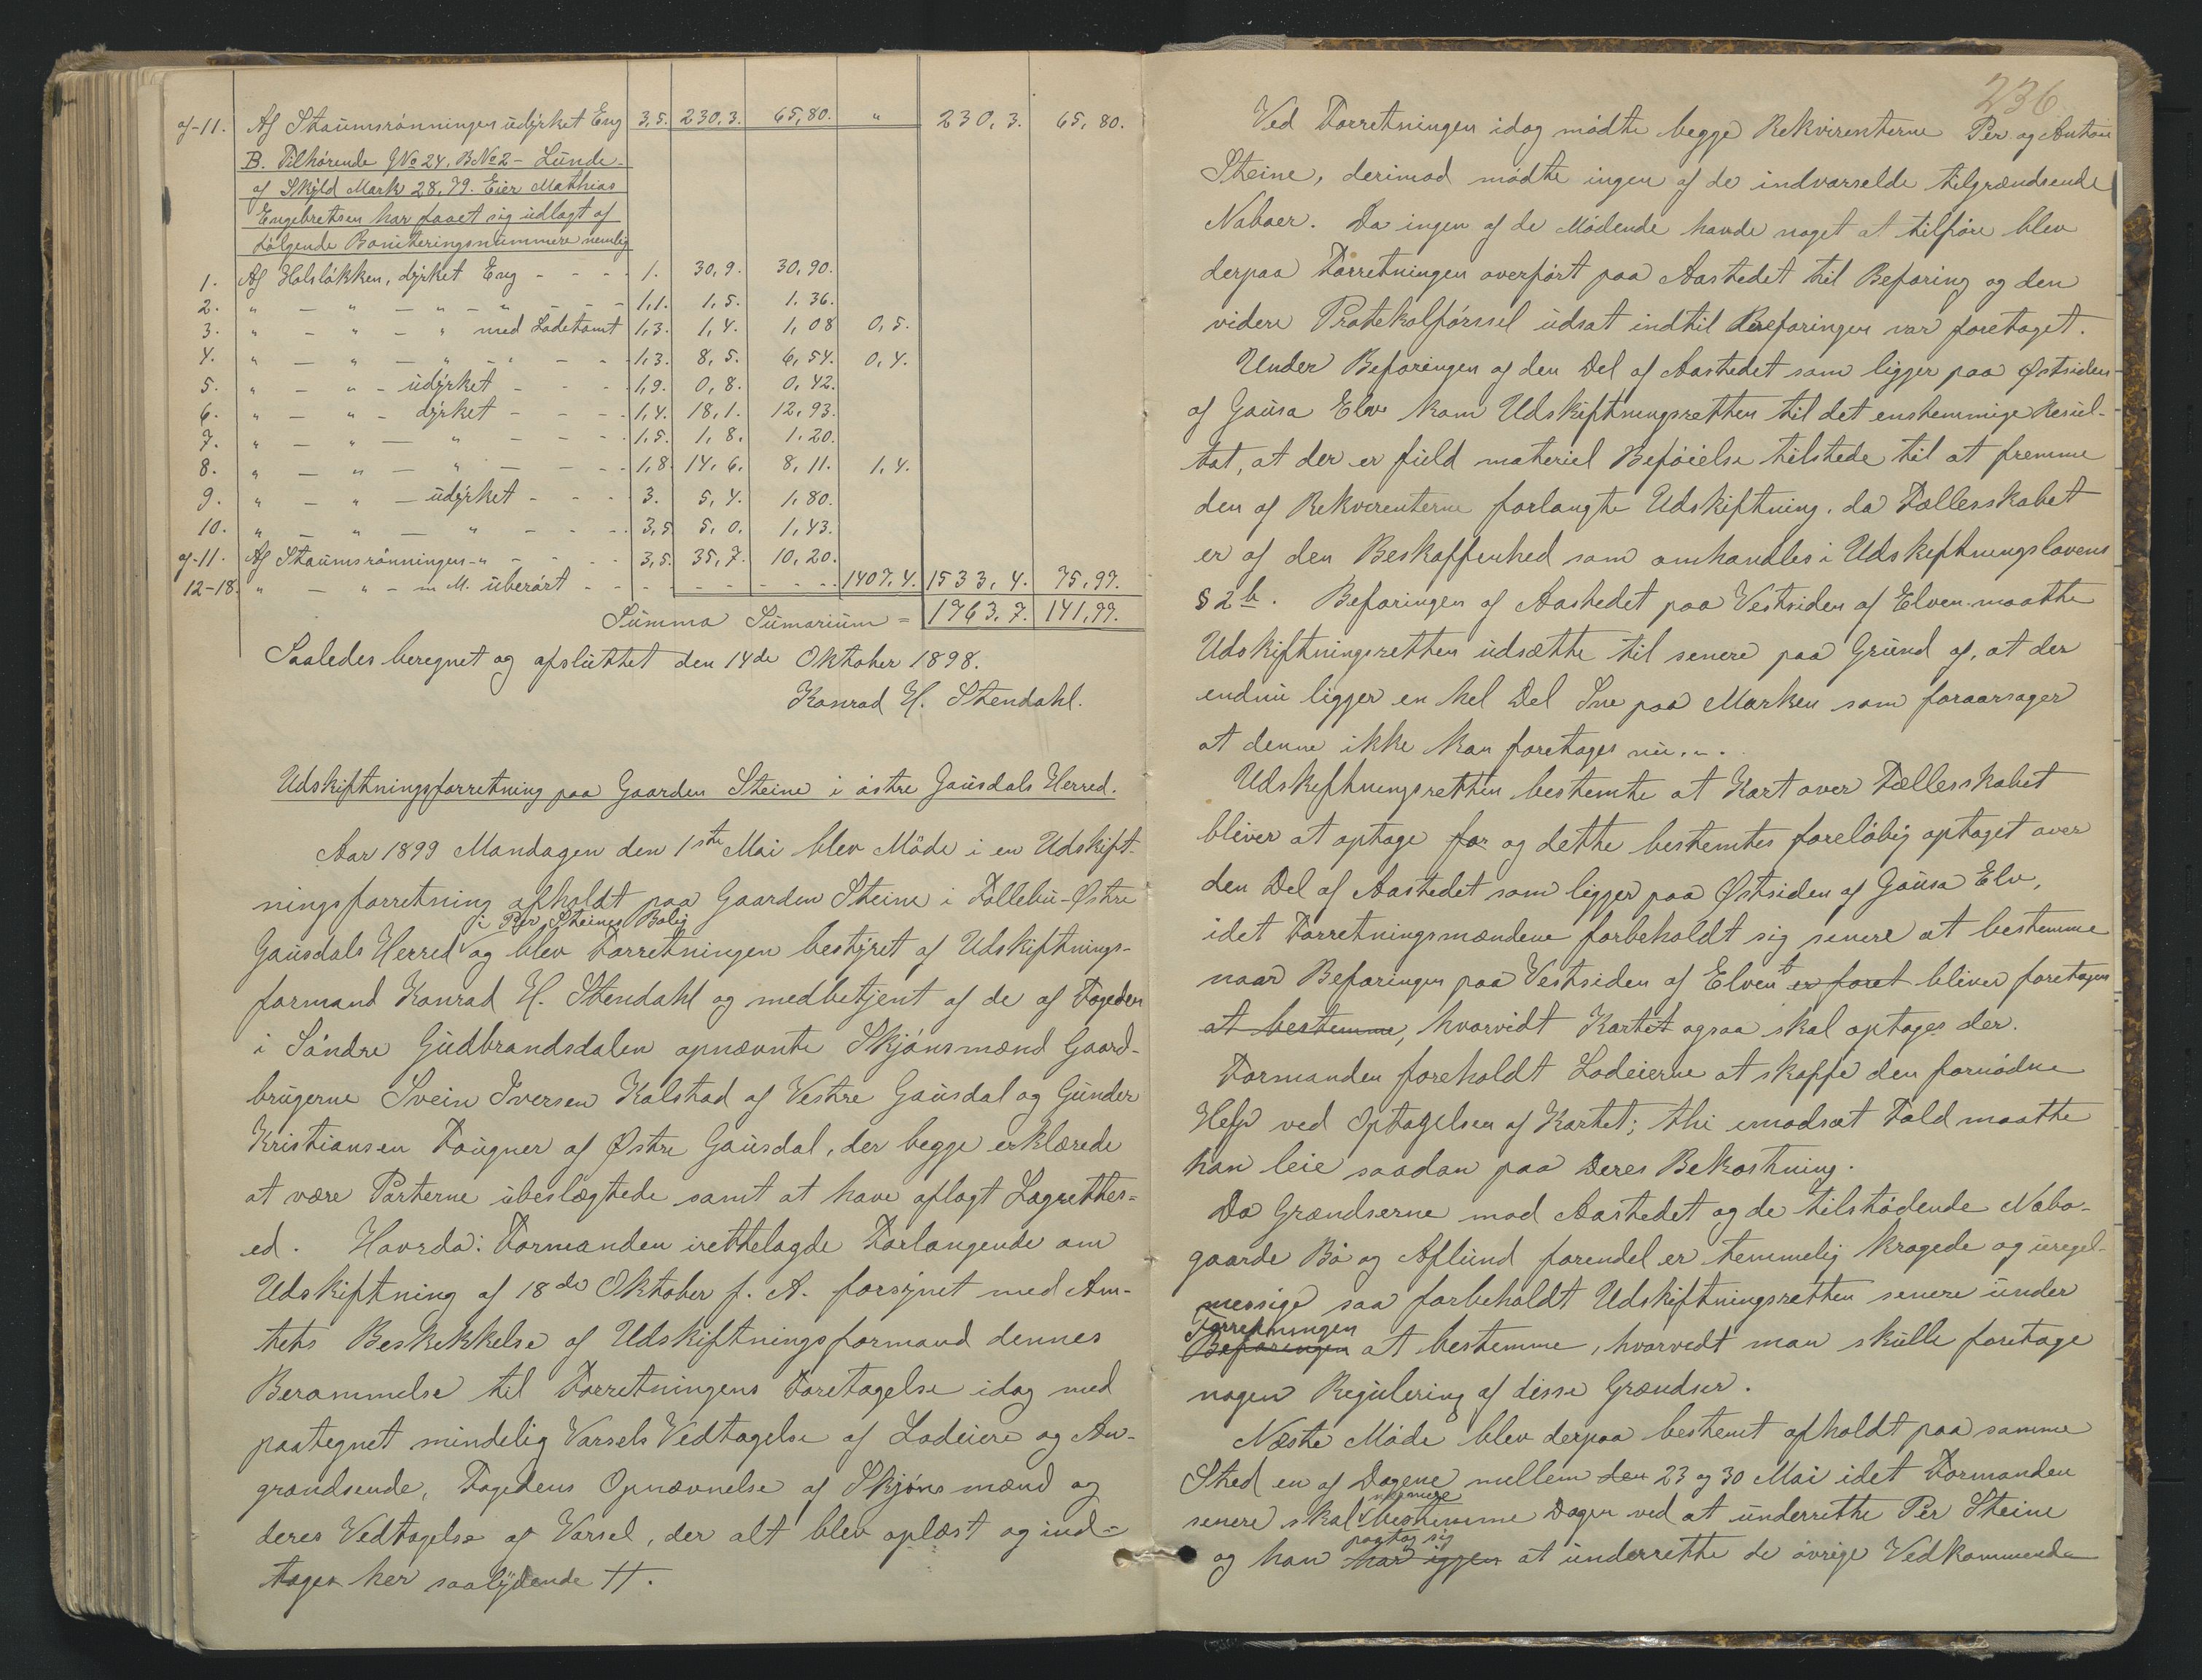 af-11. Af Staumsrønningen udyrket Eng 3,5. 230,3. 65,80. " 230,3. 65,80.
B. Tilhørende GNo 24, BNo 2 - Lunde
af Skyld Mark 28,79. Eier Mathias
Engebretsen har faaet sig udlagt af
følgende Boniteringsnummere nemlig
1. Af Holsløkken, dyrket Eng - - - 1. 30,9. 30,90.
2. " - " - " - " - - - 1,1. 1,5. 1,36.
3. " - " - " med Ladetomt 1,3. 1,4. 1,08 0,5.
4. " - " - " - " - - 1,3. 8,5. 6,54. 0,4.
5. " - " - udyrket - - - 1,9. 0,8. 0,42.
6. " - " - dyrket - - - 1,4. 18,1. 12,93.
7. " - " - " - - - 1,5. 1,8. 1,20.
8. " - " - " - - - 1,8. 14,6. 8,11. 1,4.
9. " - " - udyrket - - - 3. 5,4. 1,80.
10. " - " - " - - - 3,5 5,0. 1,43.
af-11. Af Staumsrønningen - " - - - 3,5. 35,7. 10,20.
12-18. " - " - m M. uberørt - - - - - - 1407,4. 1533,4. 75,97.
Summa Sumarium = 1763,7. 141,77.
Saaledes beregnet og afsluttet den 14de Oktober 1898.
Konrad H. Stendahl.
Udskiftningsforretning paa Gaarden Steine i østre Gausdals Herred.
Aar 1899 Mandagen den 1ste Mai blev Møde i en Udskift-
ningsforretning afholdt paa Gaarden Steine i Follebu-Østre
i Per Steines Bolig
Gausdals Herred og blev Forretningen bestyret af Udskiftnings-
formand Konrad H. Stendahl og medbetjent af de af Fogeden
i Søndre Gudbrandsdalen opnævnte Skjønsmænd Gaard-
brugerne Svein Iversen Kalstad af Vestre Gausdal og Gunder
Kristiansen Fougner af Østre Gausdal, der begge erklærede
at være Parterne ubeslægtede samt at have aflagt Lagrettes-
ed. Hvorda: Formanden irettelagde Forlangende om
Udskiftning af 18de Oktober f. A. forsynet med Am-
tets Beskikkelse af Udskiftningsformand dennes
Berammelse til Forretningens Foretagelse idag med
paategnet mindelig Varsels Vedtagelse af Lodeiere og An-
grændsende, Fogedens Opnævnelse af Skjønsmænd og
deres Vedtagelse af Varsel, der alt blev oplæst og ind-
tages her saalydende ++.
236
Ved Forretningen idag mødte begge Rekvirenterne Per og Anton
Steine, derimod mødte ingen af de indvarselde tilgrændsende
Naboer. Da ingen af de Mødende havde noget at tilføre blev
derpaa Forretningen overført paa Aastedet til Befaring og den
videre Protokolførssel udsat indtil Befaringen var foretaget.
Under Befaringen af den Del af Aastedet som ligger paa Østsiden
af Gausa Elv kom Udskiftningsretten til det enstemmige Resul-
tat, at der er fuld materiel Beføielse tilstede til at fremme
den af Rekvirenterne forlangte Udskiftning, da Fællesskabet
er af den Beskaffenhed som omhandles i Udskiftningslovens
§ 2 b. Befaringen af Aastedet paa Vestsiden af Elven maatte
Udskiftningsretten udsætte til senere paa Grund af, at der
endnu ligger en hel Del Sne paa Marken som foraarsager
at denne ikke kan foretages nu.
Udskiftningsretten bestemte at Kart over Fællesskabet
bliver at optage for og dette bestemtes foreløbig optaget over
den Del af Aastedet som ligger paa Østsiden af Gausa Elv,
idet Forretningsmændene forbeholdt sig senere at bestemme
naar Befaringen paa Vestsiden af Elven er foret bliver foretagen
at bestemme, hvorvidt Kartet ogsaa skal optages der.
Formanden foreholdt Lodeierne at skaffe den fornødne
Help ved Optagelsen af Kartet; thi imodsat Fald maatte
han leie saadan paa Deres Bekostning.
Da Grændserne mod Aastedet og de tilstødende Nabo-
gaarde Bø og Aflund forendel er temmelig krogede og uregel-
messige saa forbeholdt Udskiftningsretten senere under
Forretningen
Befaringen at bestemme, hvorvidt man skulle foretage
nogen Regulering af disse Grændser.
Næste Møde blev derpaa bestemt afholdt paa samme
Sted en af Dagene mellem den 23 og 30 Mai idet Formanden
nærmere
senere skal bestemme Dagen ved at underrette Per Steine
paatog sig
og han har igjen at underrette de øvrige Vedkommende